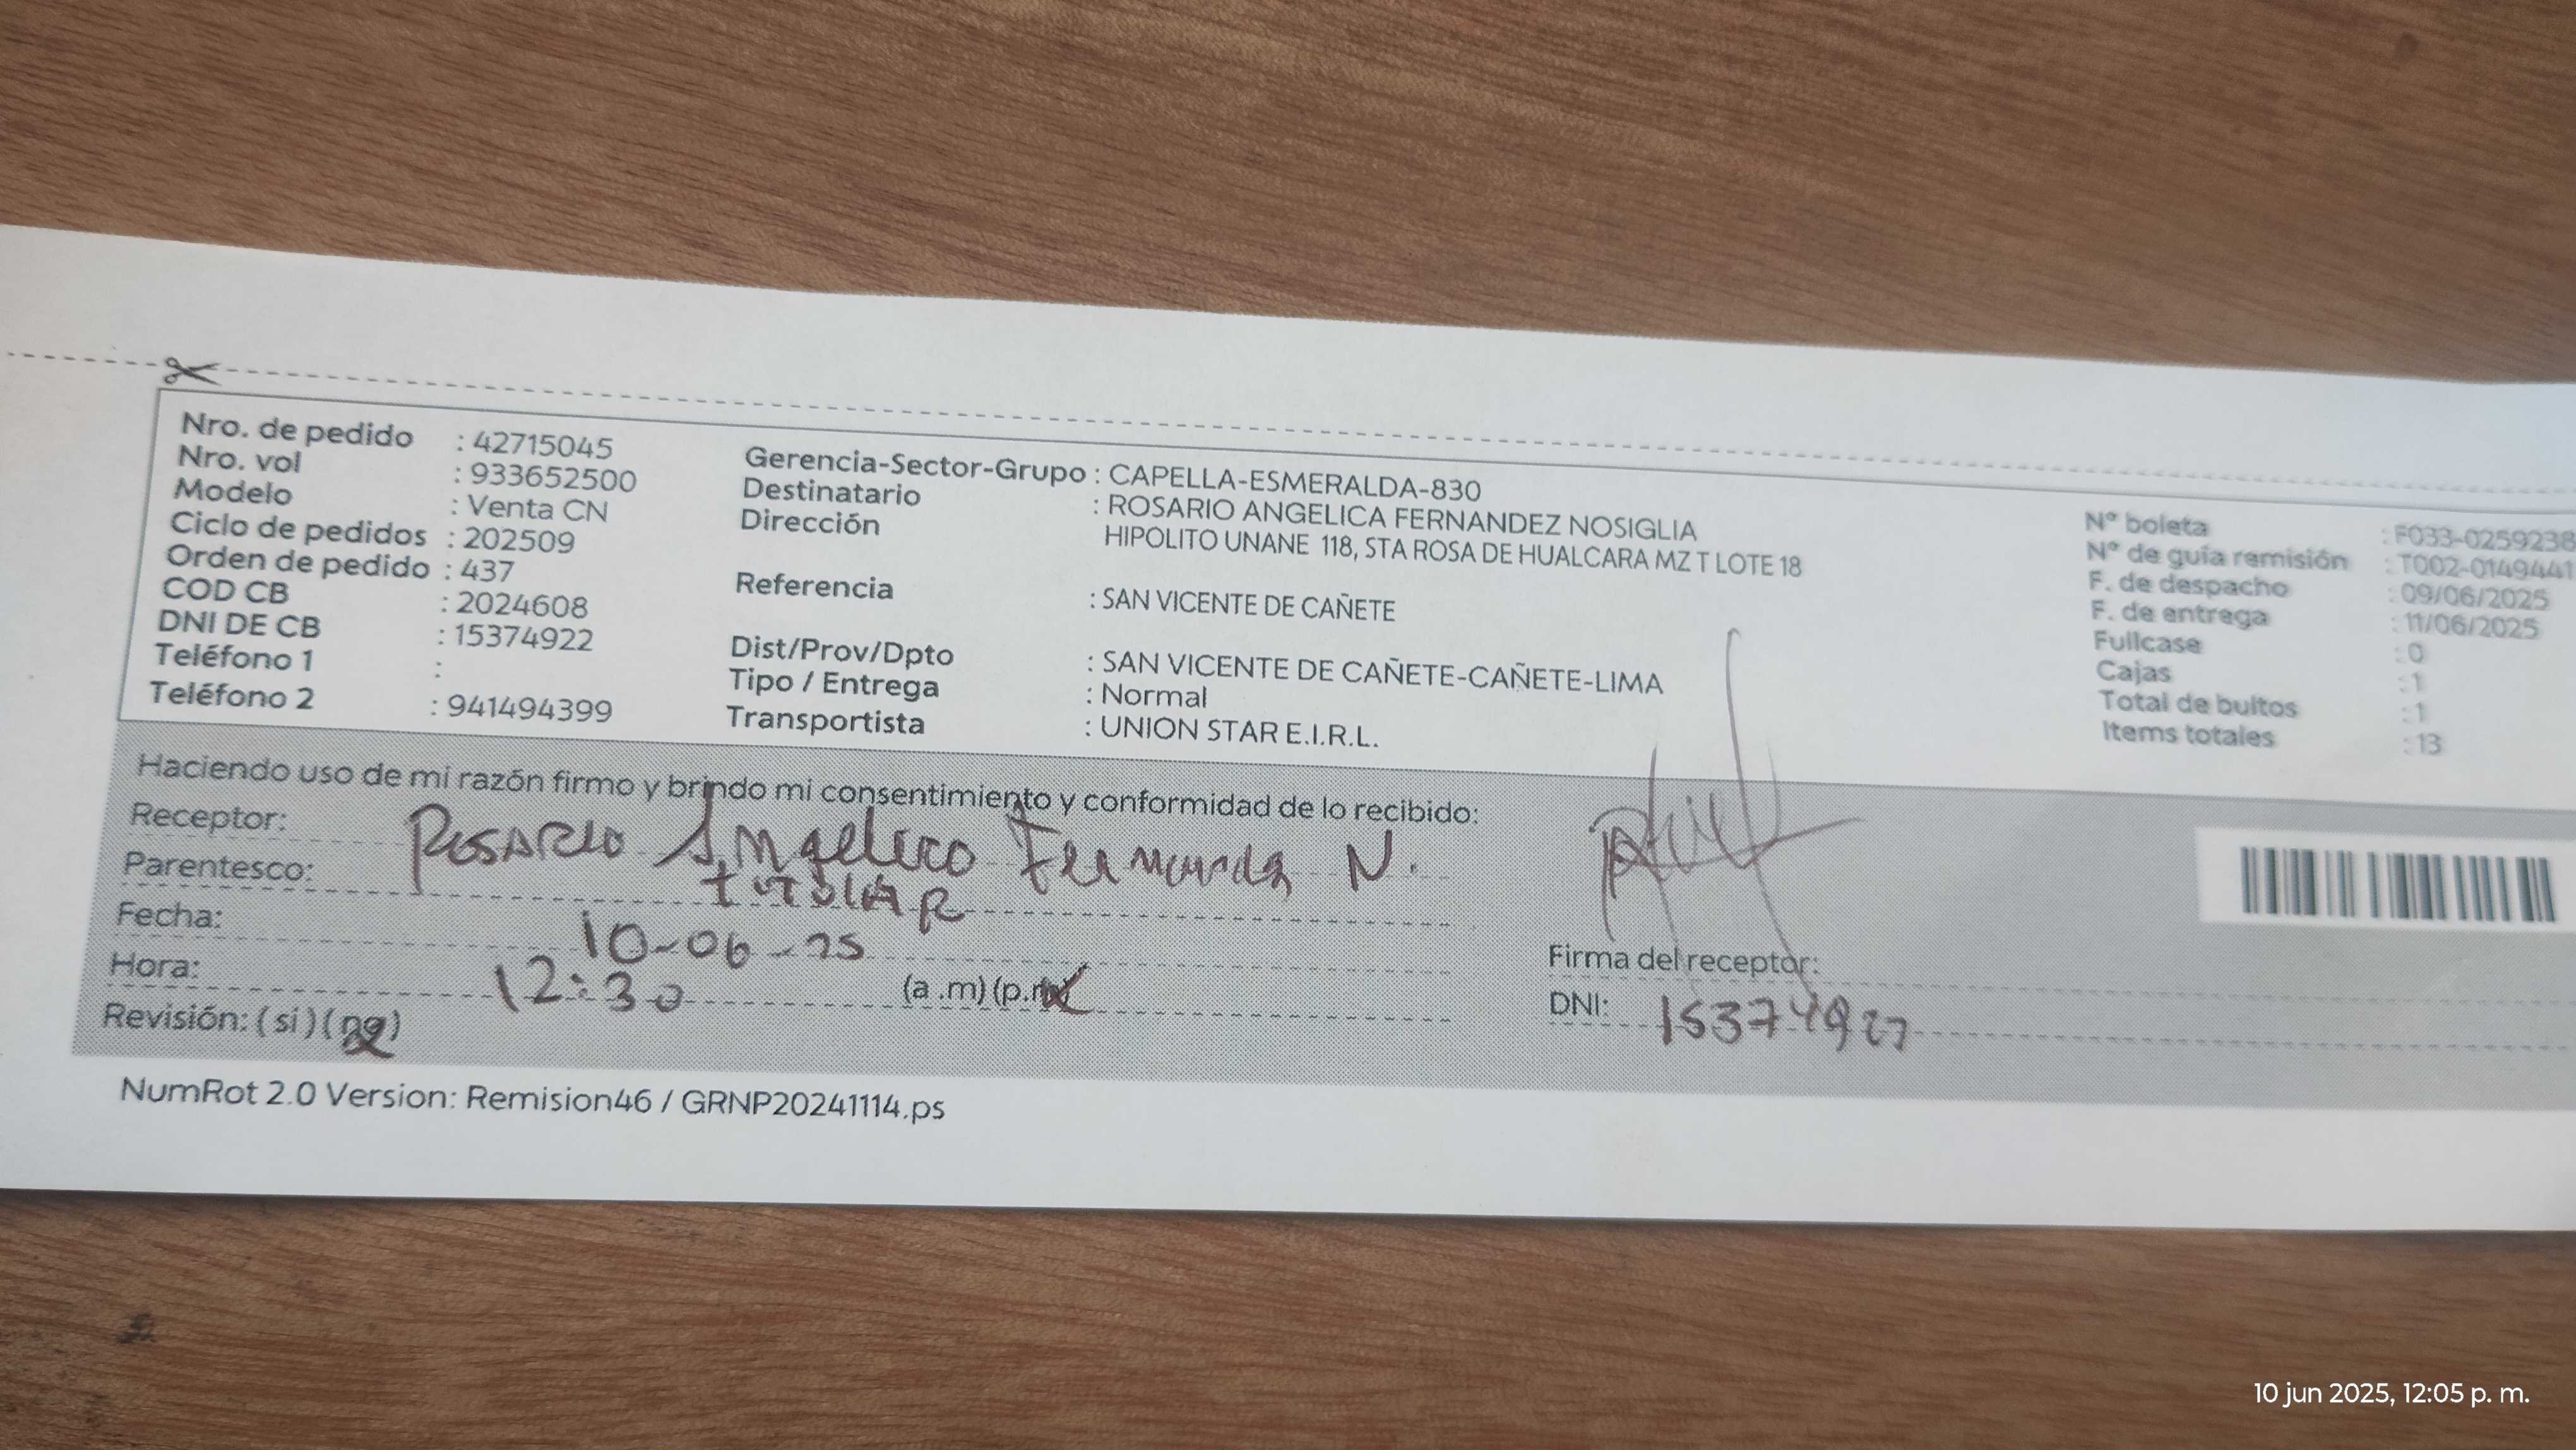 Nro. de pedido : 42715045
Nro. vol : 933652500
Modelo : Venta CN
Ciclo de pedidos : 202509
Orden de pedido : 437
COD CB : 2024608
DNI DE CB : 15374922
Teléfono 1 :
Teléfono 2 : 941494399
Gerencia-Sector-Grupo : CAPELLA-ESMERALDA-830
Destinatario : ROSARIO ANGELICA FERNANDEZ NOSIGLIA
Dirección HIPOLITO UNANE 118, STA ROSA DE HUALCARA MZ T LOTE 18
Referencia : SAN VICENTE DE CAÑETE
Dist/Prov/Dpto : SAN VICENTE DE CAÑETE-CAÑETE-LIMA
Tipo / Entrega : Normal
Transportista : UNION STAR E.I.R.L.
N° boleta : F033-0259238
N° de guía remisión : T002-0149441
F. de despacho : 09/06/2025
F. de entrega : 11/06/2025
Fullcase : 0
Cajas : 1
Total de bultos : 1
Items totales : 13
Haciendo uso de mi razón firmo y brindo mi consentimiento y conformidad de lo recibido:
Receptor: ROSARIO Angelica Fernandz N.
Parentesco: TITULAR
Fecha: 10-06-25
Hora: 12:30 (a .m) (p.m)
Revisión: (si) (no)
Firma del receptor:
DNI: 15374922
NumRot 2.0 Version: Remision46 / GRNP20241114.ps
10 jun 2025, 12:05 p. m.